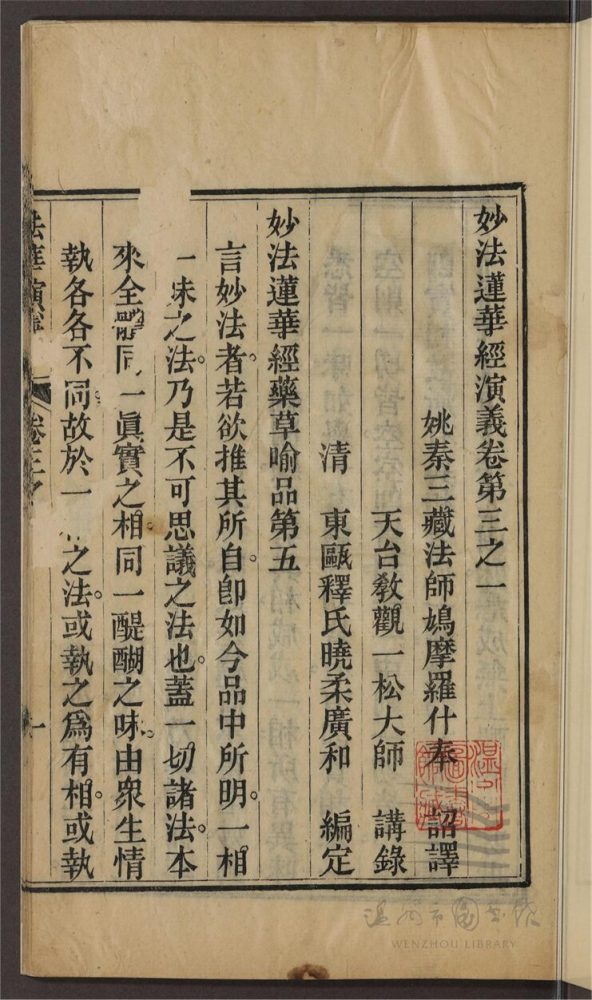 妙法蓮華經演義卷第三之一
姚秦三藏法師鳩摩羅什奉 詔譯
天台教觀一松大師 講錄
清 東甌釋氏曉柔廣和 編定
妙法蓮華經藥草喻品第五
言妙法者。若欲推其所自。卽如今品中所明。一相
一味之法。乃是不可思議之法也。蓋一切諸法。本
來全體同一眞實之相。同一醍醐之味。由衆生情
執各各不同。故於一 之法。或執之爲有相。或執
法華演義 卷三之 一
溫州市圖書館
WENZHOU LIBRARY